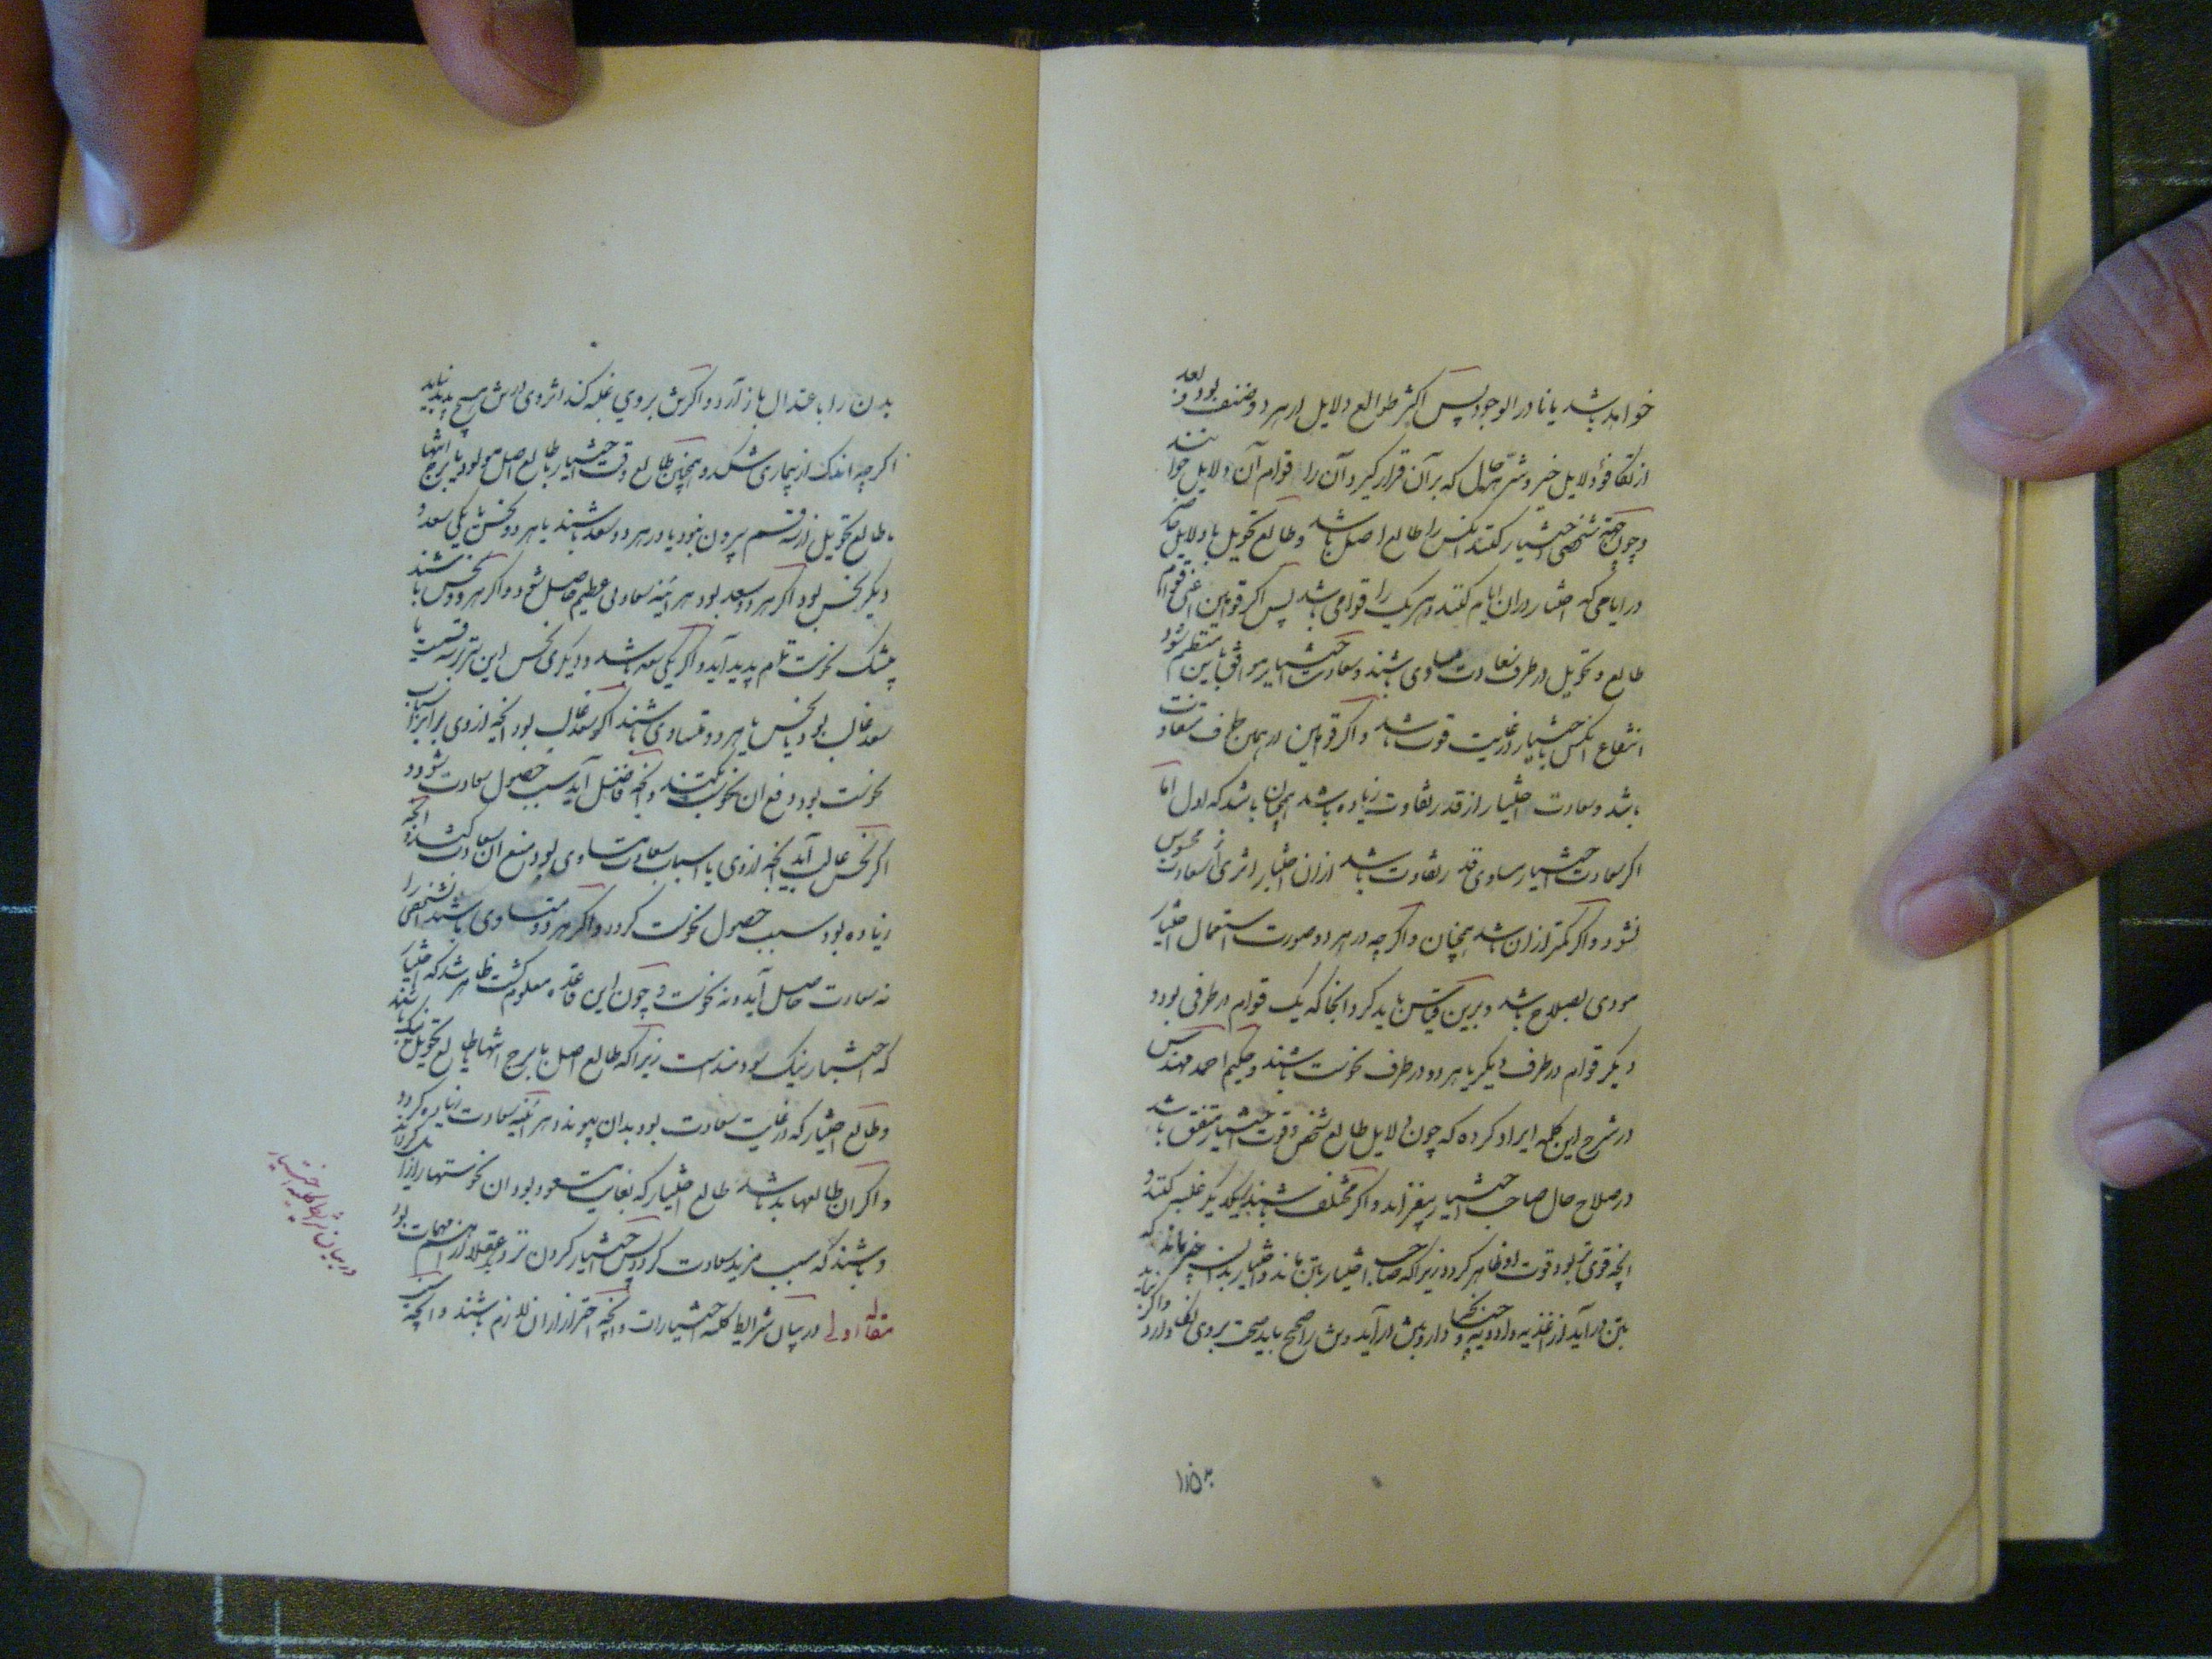 خواهد باشد یا نادر الوجود پس اکثر طوالع دلایل از هر دو صنف بود و بعد
از تکافؤ دلایل خیر و شر حال که بر آن قرار گیرد آن را قوام آن دلایل خوانند
و چون جهة شخصی اختیار کنند آنکس را طالع اصل باشد و طالع تحویل با دلایل
در ایامی که اختیار در آن ایام کنند و هر یک را قوامی باشد پس اگر قوامین اعنی قوام
طالع و تحویل در طرف سعادت مساوی باشند و سعادت اختیار موافق باین منتظم شود
انتفاع آنکس باختیار در غایت قوت باشد و اگر قوامین در همان طرف متفاوت
باشد و سعادت اختیار از قدر تفاوت زیاده باشد همچنان باشد که اول اما
اگر سعادت اختیار مساوی قدر تفاوت باشد از آن اختیار اثری از سعادت محسوس
نشود و اگر کمتر از آن باشد همچنان و اگرچه در هر دو صورت استعمال اختیار
مودی بصلاح باشد و برین قیاس باید کرد آنجا که یک قوام در طرفی بود و
دیگر قوام در طرف دیگر یا هر دو در طرف نحوست باشند و حکیم احمد مهندس
در شرح این کلمه ایراد کرده که چون دلایل طالع شخص و وقت اختیار متفق باشد
در صلاح حال صاحب اختیار بیفزاید و اگر مختلف باشند بیکدیگر غلبه کنند و
آنچه قوی تر بود قوت او ظاهر گردد زیرا که صاحب اختیار بتن ماند و اختیار بدان چیز ماند که
بتن در آید از اغذیه و ادویه و چنانکه دارو بتن در آید و تن را صحیح یابد صحت بروی نگاه دارد و اگر
۱۱۵
بدن را باعتدال باز آرد و اگر تن بروی غلبه کند اثر وی در تن هیچ پدید نیاید
اگرچه اندک از بیماری بشکند و همچنین طالع وقت اختیار با طالع اصل مولود یا برج انتها
یا طالع تحویل از سه قسم بیرون نبود یا در هر دو سعد باشند یا هر دو نحس یا یکی سعد و
دیگر نحس بود اگر هر دو سعد بود هر آینه سعادتی عظیم حاصل شود و اگر هر دو نحس باشند
بیشک نحوست تمام پدید آید و اگر یکی سعد باشد و دیگری نحس این نیز بر سه قسمست یا
سعد غالب بود یا نحس یا هر دو متساوی باشند اگر سعد غالب بود آنچه از وی برابر اسباب
نحوست بود دفع آن نحوست کند و آنچه فاضل آید سبب حصول سعادت شود و
اگر نحس غالب آید آنچه از وی با اسباب سعادت مساوی بود منع آن سعادت کند و آنچه
زیاده بود سبب حصول نحوست گردد و اگر هر دو متساوی باشند آن شخص را
نه سعادت حاصل آید و نه نحوست و چون این قاعده معلوم گشت ظاهر شد که اختیار
که اختیار نیک سودمند است زیرا که طالع اصل یا برج انتها یا طالع تحویل نیک باشند
و طالع اختیار که در غایت سعادت بود بدان پیوندد هر آینه سعادت زیاده گردد
و اگر آن طالعها بد باشد طالع اختیار که بغایت مسعود بود آن نحوستها را زایل گرداند
و باشند که سبب مزید سعادت گردد پس اختیار کردن نزد عقلا از اهم مهمات بود
مقاله اولی در بیان شرایط کلیه اختیارات و آنچه احتراز از آن لازم باشند و آنچه سبب
در بیان شرایط کلیه اختیار